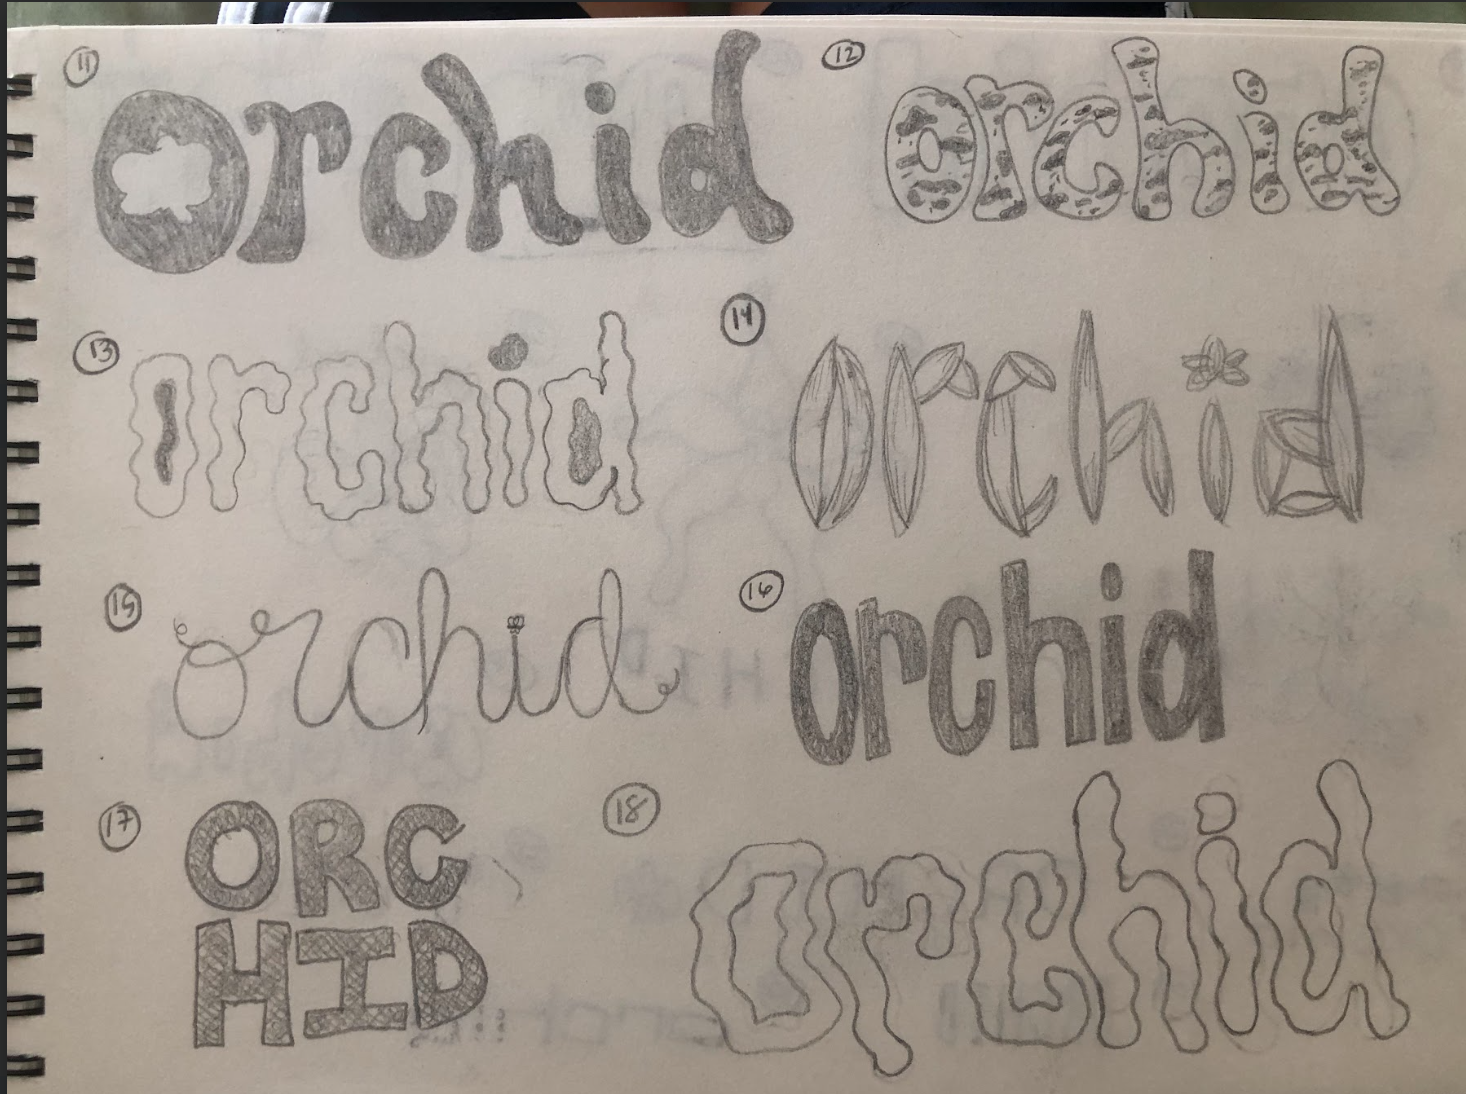 11 orchid
12 orchid
13 orchid
14 orchid
15 orchid
16 orchid
17 ORC
HID
18 orchid